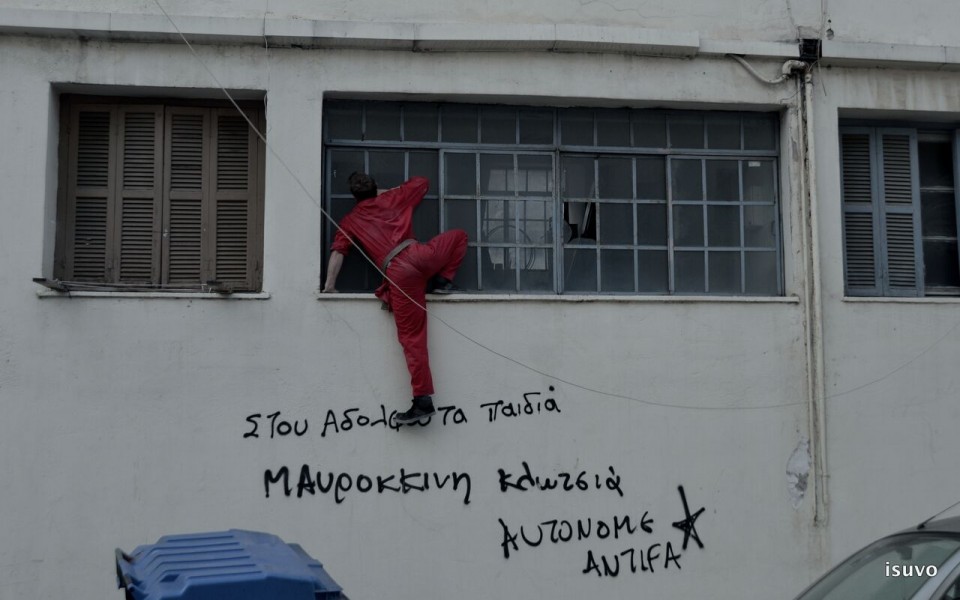 Στου Αδολφου τα παιδιά
ΜΑυροκκινη κλωτσιά
AUTONOME
ANTIFA
isuvo